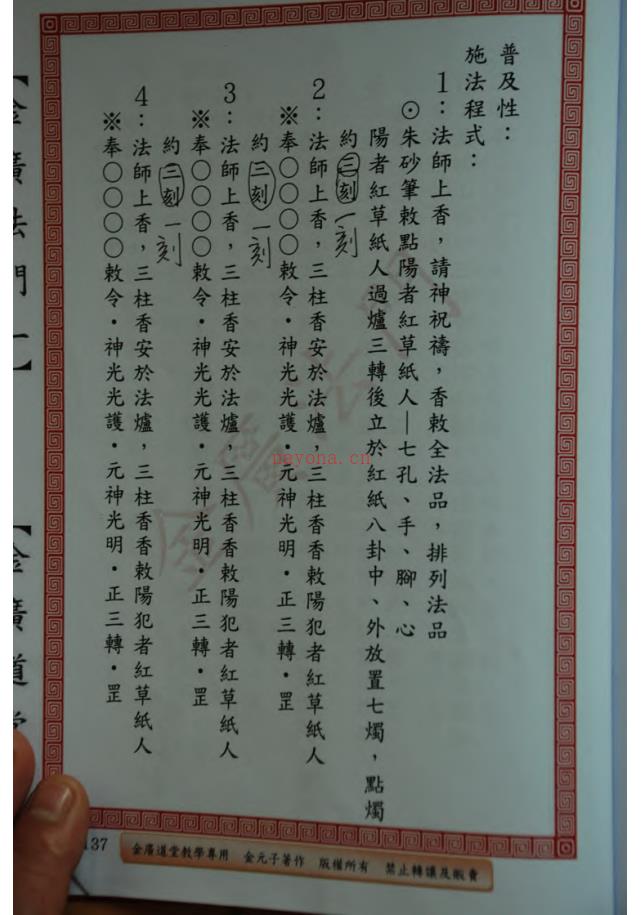 普及性：
施法程式：
1：法師上香，請神祝禱，香敕全法品，排列法品
⊙朱砂筆敕點陽者紅草紙人—七孔、手、腳、心
陽者紅草紙人過爐三轉後立於紅紙八卦中、外放置七燭，點燭
約三刻 一刻
2：法師上香，三柱香安於法爐，三柱香香敕陽犯者紅草紙人
※奉○○○○敕令・神光光護・元神光明・正三轉・罡
約三刻 一刻
3：法師上香，三柱香安於法爐，三柱香香敕陽犯者紅草紙人
※奉○○○○敕令・神光光護・元神光明・正三轉・罡
約三刻 一刻
4：法師上香，三柱香安於法爐，三柱香香敕陽犯者紅草紙人
※奉○○○○敕令・神光光護・元神光明・正三轉・罡
【金廣法門一】
【金廣道堂
金廣法門
payona.cn
137
金廣道堂教學專用 金元子著作 版權所有 禁止轉讓及販賣